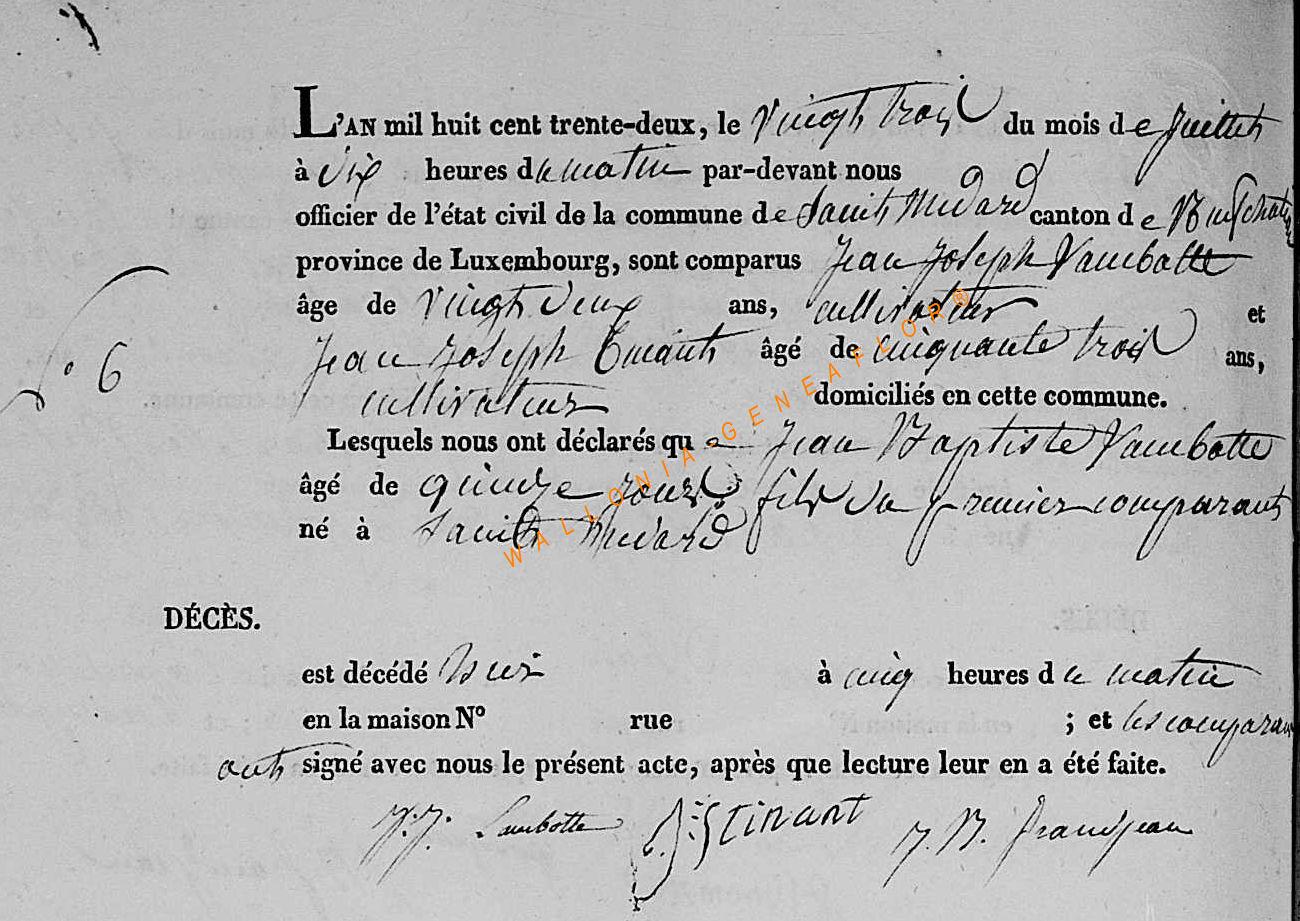 L'AN mil huit cent trente-deux, le Vingt trois du mois de Juillet
à Six heures du matin par-devant nous
officier de l'état civil de la commune de Saint Medard canton de Neufchateau
province de Luxembourg, sont comparus Jean Joseph Lambotte
âge de Vingt Deux ans, cultivateur et
Jean Joseph âgé de cinquante trois ans,
N° 6
cultivateur domiciliés en cette commune.
Lesquels nous ont déclarés que Jean Baptiste Lambotte
âgé de quinze jours fils du premier comparant
né à Saint Medard
WALLONIA-GENEAFLOR®
DÉCÈS.
est décédé à cinq heures du matin
en la maison N° rue ; et les comparants
ont signé avec nous le présent acte, après que lecture leur en a été faite.
J.J. Lambotte J. J. Stinant J. B. Grandjean